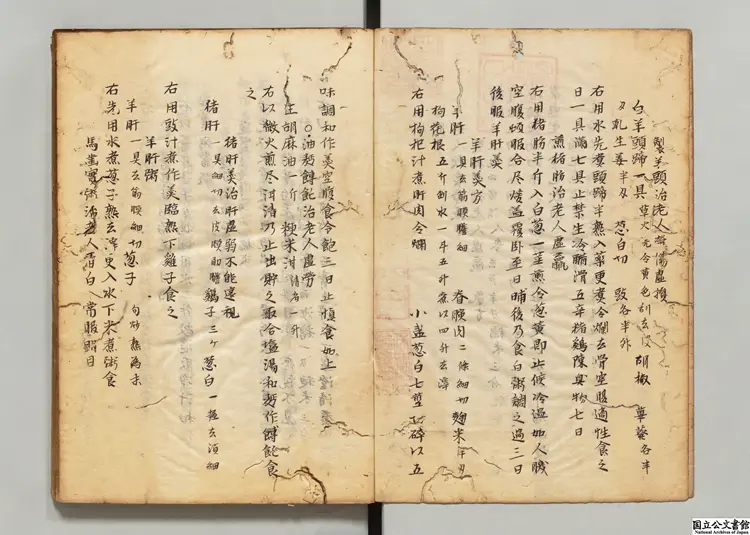 製羊頭治老人
白羊頭蹄一具 草火 令黄色刮去皮 胡椒 蓽 各半
乃 生姜半 葱白切 豉各半升
右用水先煮頭蹄半熟入藥更煮令爛去滑空腹適性食之
日一具滿七具止禁生冷 滑五辛 鷄陳臭物七日
煎 肪治老人虚羸
右用 肪半斤入白葱一莖煎令葱黄即止候冷温如人
空腹 服令尽煖盖覆卧至日晡後乃食白粥 之過三日
後服羊肝羹
羊肝羹方
羊肝 一具去筋膜 細 脊膜肉二條細切 麹米半
枸杞根五斤剉水一斗五升煮以四升去滓
右用枸杞汁煮肝肉令爛 小盞葱白七莖 碎以五
味調和作羹空腹食令飽三日止慎食如上
○油 飥治老人虚労
生胡麻油一斤 粳米泔 清者一升
右以微火煎尽泔清乃止出貯之取合塩湯和 作 飥食
之
猪肝羹治肝虚弱不能遠視
猪肝 一具細切去皮膜 鷄子三ケ 葱白 一握去須細
右用豉汁煮作羹臨熟下雞子食之
羊肝粥
羊肝 一具去筋膜細切 葱子 炒 為末
右先用水煮葱子熟去滓史入水下米煮粥食
馬 實粥治老人青白 常服明目
国立公文書館
National Archives of Japan